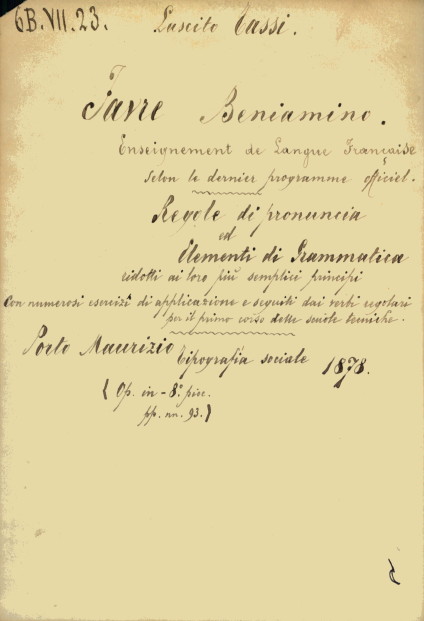 6B.VII.23. Lascito Tassi.
Favre Beniamino.
Enseignement de Langue Française
selon le dernier programme officiel.
Regole di pronuncia
ed
Elementi di Grammatica
ridotti ai loro più semplici principi
Con numerosi esercizi di applicazione e seguiti dai verbi regolari
per il primo corso delle scuole tecniche.
Porto Maurizio Tipografia sociale 1878.
(Op. in-8.° picc.
pp. nn. 93.)